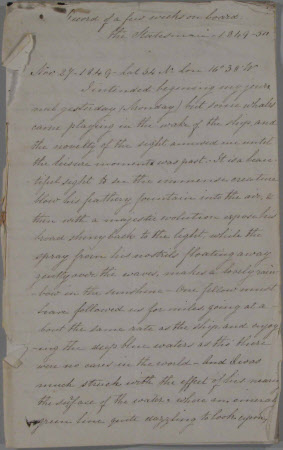 Record of a few weeks on board
the Statesman - 1849-50
Nov 27 - 1849 - Lat 34 N. Lon 16° 34' W
I intended beginning my jour
nal yesterday (Monday) but some whales
came playing in the wake of the ship and
the novelty of the sight amused me until
the leisure moment was past. It is a beau
tiful sight to see the immense creature
blow his feathery fountain into the air, &
then with a majestic evolution expose his
broad shiny back to the light while the
spray from his nostrils floating away
gently over the waves makes a lovely rain
bow in the sunshine - One fellow must
have followed us for miles going at a
bout the same rate as the ship and enjoy
ing the deep blue waters as tho there
were no cares in the world - And I was
much struck with the effect of his
the surface of the water where an emerald
green line quite dazzling to look upon